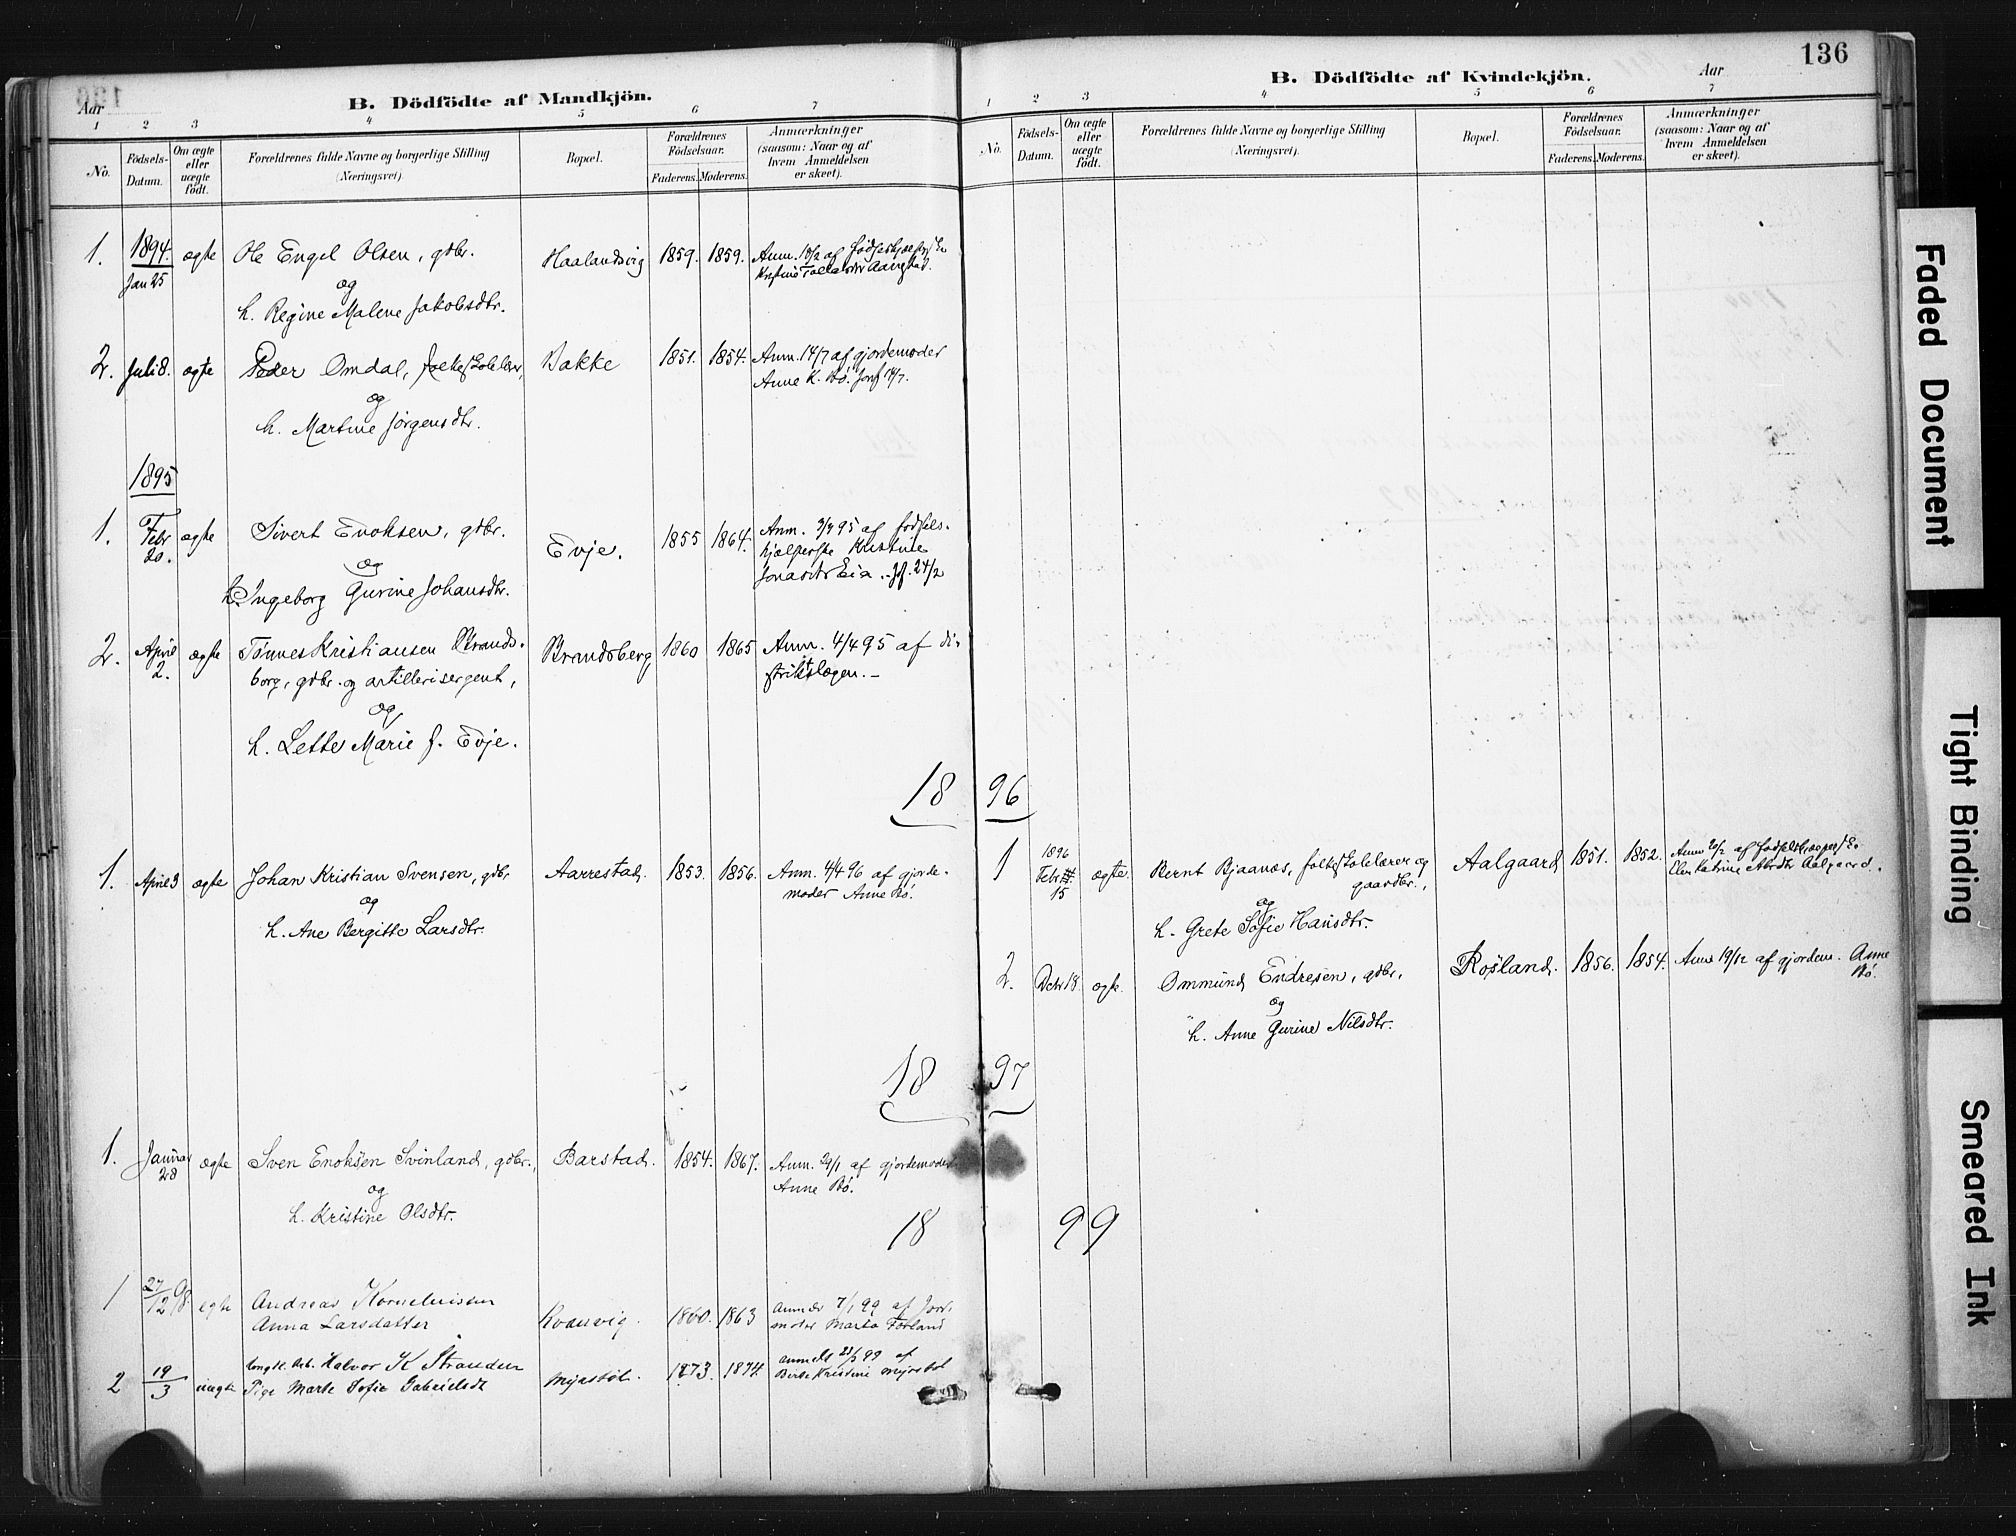 Aar
B. Dödfödte af Mandkjön.
1 2 3 4 5 6 7
No.
Födsels-Datum.
Om ægte eller uægte født.
Forældrenes fulde Navne og borgerlige Stilling (Næringsvei).
Bopæl.
Forældrenes Födselsaar.
Faderens. Moderens.
Anmærkninger (saasom: Naar og af hvem Anmeldelsen er skeet).
1. 1894. Jan 25 ægte Ole Engel Olsen, gdbr. Haalandsvig 1859. 1859. Anm. 18/2 af
og
h. Regine Malene Jakobsdtr.
2. Juli 8. ægte Peder Omdal, folkeskolelærer, Bakke 1851. 1854. Anm. 14/7 af gjordemoder
Anne K. Bø. Jordf 14/7.
og
h. Martine Jørgensdtr.
1895
1. Febr 20. ægte Sivert Enoksen, gdbr. Evje. 1855 1864. Anm. 3/4 95 af fødsels-
hjælperske Kristine
Jonasdtr Eia. Jf. 24/2
og
h. Ingeborg Gurine Johansdtr.
2. April 2. ægte Tønnes Kristiansen Brands- Brandsberg 1860 1865 Anm. 4/4 95 af di-
borg, gdbr. og artillerisergent, striktslægen.-
og
h. Lette Marie f. Evje.
18 96
1. April 3 ægte Johan Kristian Svensen, gdbr. Aarrestad. 1853. 1856. Anm. 4/4 96 af gjorde-
moder Anne Bø.
og
h. Ane Bergitte Larsdtr.
18 97
1. Januar 28 ægte Sven Enoksen Svinland, gdbr., Barstad. 1854. 1867. Anm. 29/1 af gjordemoder
Anne Bø.
og
h. Kristine Olsdtr.
18 99
1 27/12 98 egte Andreas Korneliussen
Anna Larsdatter Kvanvig. 1860. 1863 anm. 7/1 99 af Jor-
moder Marta Förland
2 19/3 uegte Ungk. Arb. Halvor K Stranden
Pige Marte Sofie Gabrielsdt Myrstöl. 1873. 1874. anmeldt 23/3 99 af
Kristine Myrstöl
136
B. Dödfödte af Kvindekjön.
Aar
1 2 3 4 5 6 7
No.
Födsels-Datum.
Om ægte eller uægte födt.
Forældrenes fulde Navne og borgerlige Stilling (Næringsvei).
Bopæl.
Forældrenes Födselsaar.
Faderens. Moderens.
Anmærkninger (saasom: Naar og af hvem Anmeldelsen er skeet).
1 1896 Febr. 15 ægte Bernt Bjaanæs, folkeskolelærer og Aalgaard 1851. 1852. Anm 20/2 af
gaardbr., Elen Katrine Aalgaard.
og
h. Grete Sofie Hansdtr.
2. Debr 18. ægte. Ommund Endresen, gdbr. Rosland. 1856. 1854. Anm 19/12 af gjordem. Anne
Bø.
og
h. Anne Gurine Nilsdtr.
Faded Document
Tight Binding
Smeared Ink